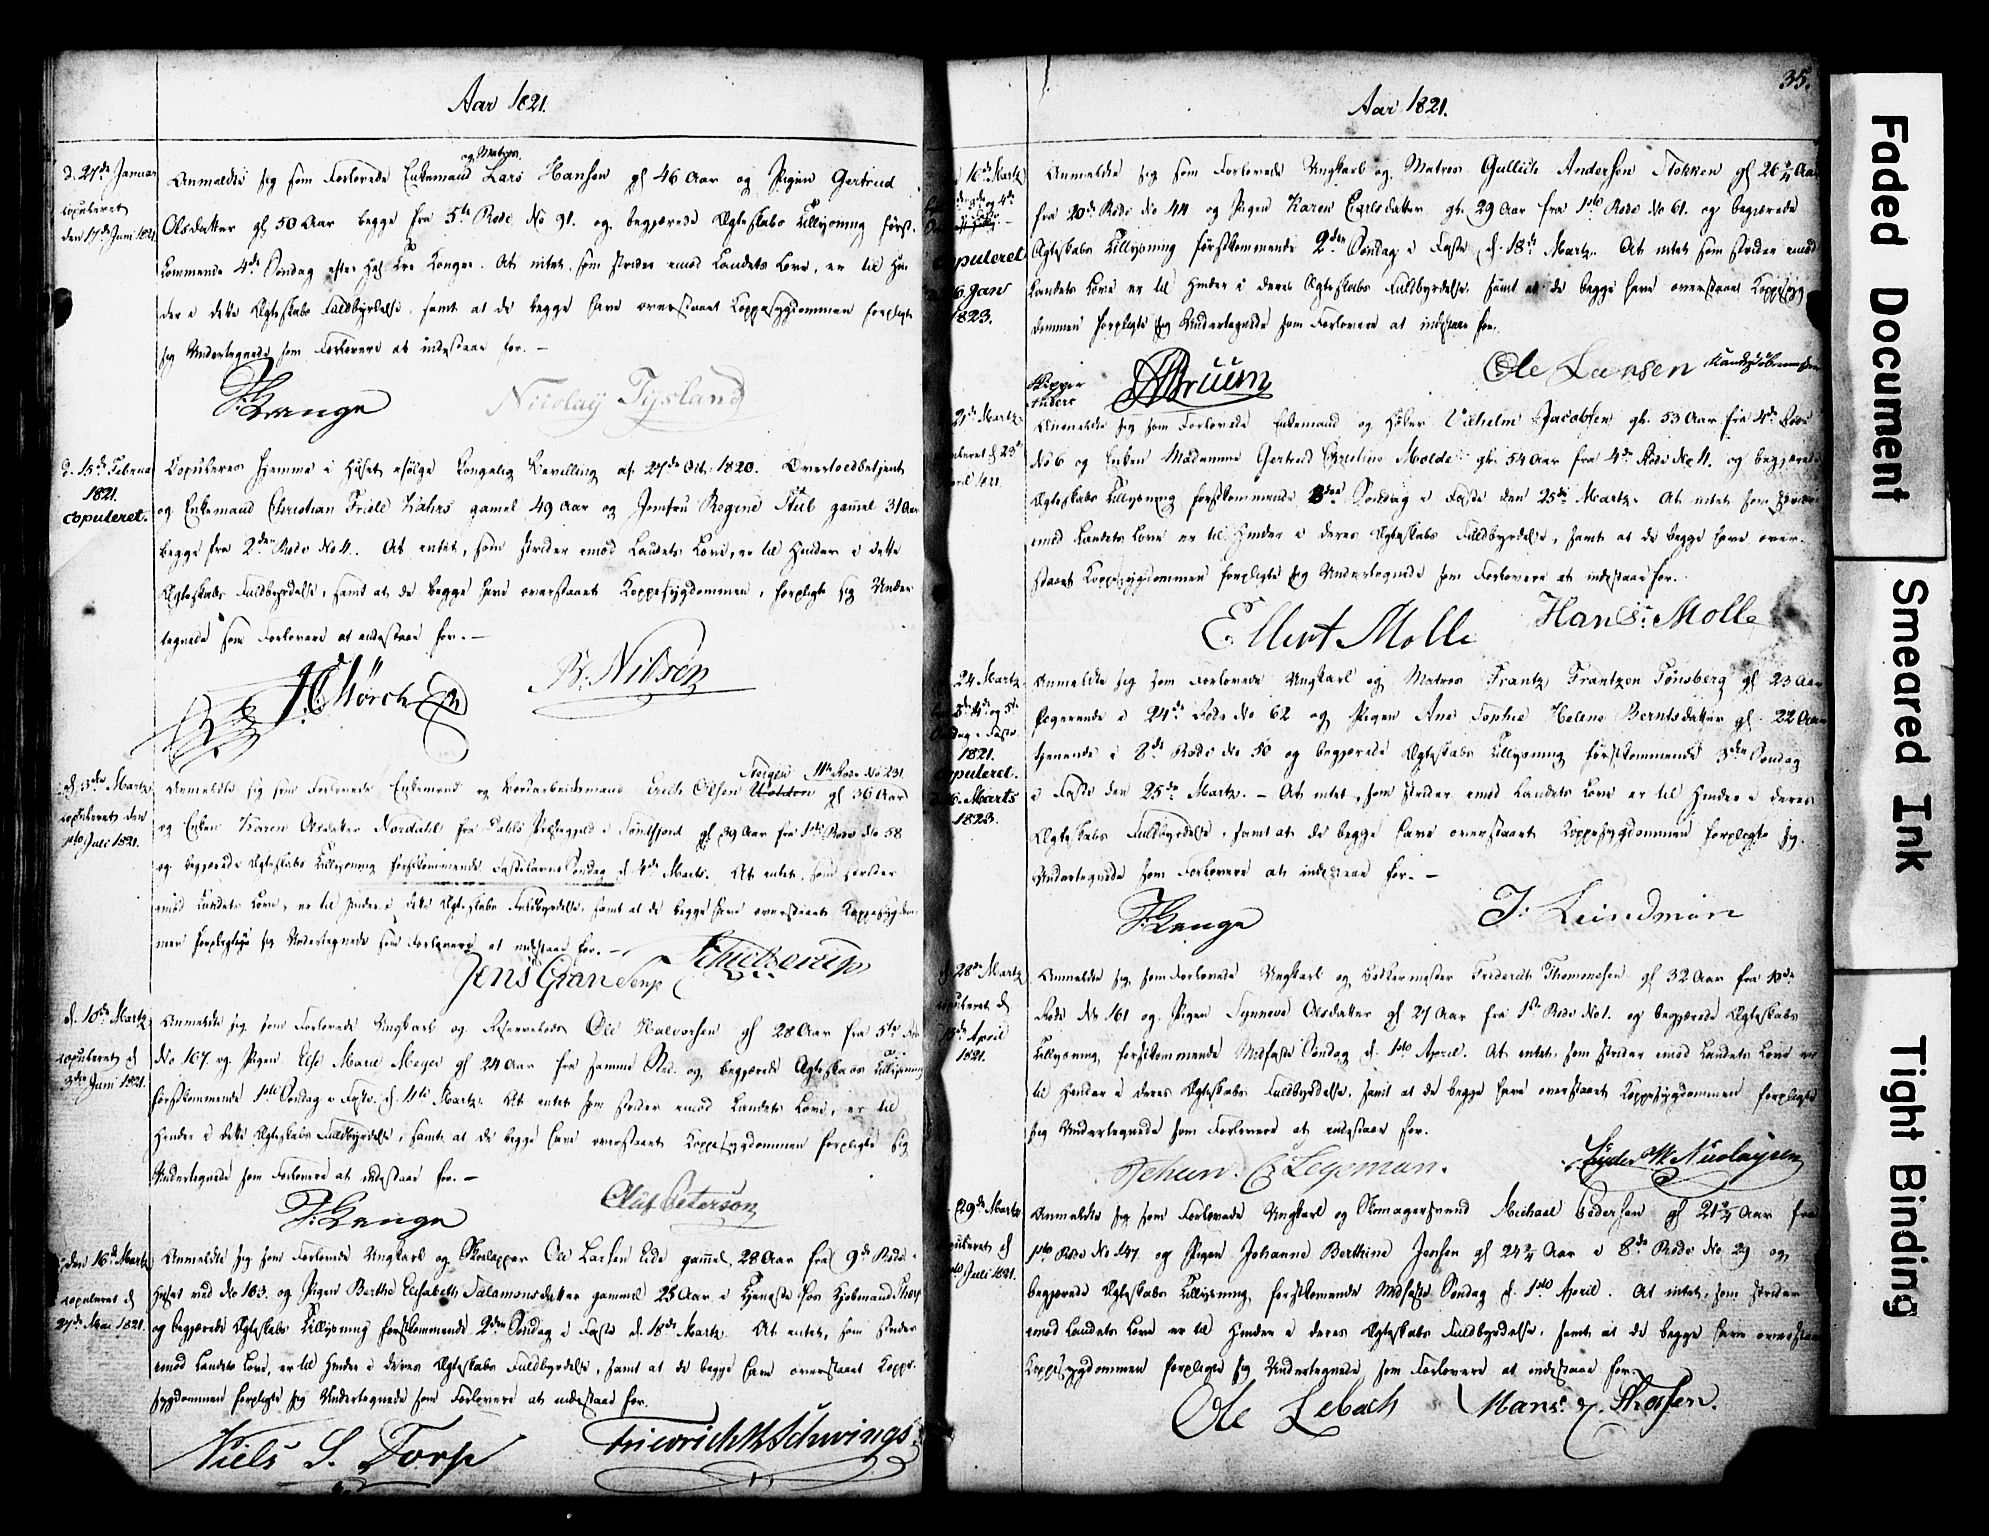 Aar 1821.
d. 27de Januar
copuleret
den 17de Juni 1821
og Matros
Anmeldte sig som Forlovede Enkemand Lars Hansen gl 46 Aar og Pigen Gertrud
Olsdatter gl 50 Aar begge fra 5te Rode No 91. og begjærede Ægteskabs Tillysning først-
kommende 4de Søndag efter Hel. Tre Konger. At intet, som strider imod Landets Love, er til Hin-
der i dette Ægteskabs Fuldbyrdelse, samt at de begge have overstaaet Koppesygdommen forpligte
sig Undertegnede som Forlovere at indestaae for. —
Nicolay Tysland
d. 15de Februar
1821.
copuleret.
Copuleres hjemme i Huset ifølge Kongelig Bevilling af 27de Oct. 1820. Overtoldbetjent
og Enkemand Christian Friele Kahrs gamel 49 Aar og Jomfru Regine Stub gamel 31 Aar
begge fra 2den Rode No 4. At intet, som strider imod Landets Love, er til Hinder i dette
Ægteskabs Fuldbyrdelse, samt at de begge have overstaaet Koppesygdommen, forpligte sig Under
tegnede som Forlovere at indestaae for. —
Mørch
Nilsen
d. 3de Martz
copuleret den
1ste Juli 1821.
11te Rode No 231
Anmeldte sig som Forlovede Enkemand og Olsen gl 36 Aar
og Enken Karen Olsdatter Nordahl fra Dahls Præstegjeld i Søndfjord gl 39 Aar fra 1ste Rode No 58
og begjærede Ægteskabs Tillysning førstkommende Fastelavns Søndag d. 4de Marts. At intet, som strider
imod Landets Love, er til Hinder i dette Ægteskabs Fuldbyrdelse, samt at de begge have overstaaet Koppesygdom-
men forpligtige sig Undertegnede som Forlovere at indestaae for. —
Jens Gran Senr
d. 10de Martz
copuleret d
3die Juni 1821.
Anmeldte sig som Forlovede Ungkarl og Ole Halvorsen gl 28 Aar fra 5te Rode
No 107 og Pigen Else Marie Meyer gl 24 Aar fra samme Sted. og begjærede Ægteskabs Tillysning
førstkommende 1ste Søndag i Faste d. 11te Martz. At intet som strider imod Landets Love, er til
Hinder i dette Ægteskabs Fuldbyrdelse, samt at de begge have overstaaet Koppesygdommen forpligte sig
Undertegnede som Forlovere at indestaae for. —
Oluf Peterson
den 16de Martz
copuleret d
27de Mai 1821.
Anmeldte sig som Forlovede Ungkarl og Skoelapper Ole Larsen Eide gamel 28 Aar fra 9de Rode
Huset ved No 163. og Pigen Berthe Elisabeth Salamonsdatter gammel 25 Aar i Tjeneste hos Kjøbmand Thorp
og begjærede Ægteskabs Tillysning førstkommende 2den Søndag i Faste d. 18de Martz. At intet, som strider
imod Landets Love, er til Hinder i deres Ægteskabs Fuldbyrdelse, samt at de begge have overstaaet Koppe-
sygdommen forpligte sig Undertegnede som Forlovere at indestaae for.
Niels S. Torp
Friedrich Schwings
35.
Aar 1821.
16de Martz
copuleret
6. Jan
1823.
Anmeldte sig som Forlovede Ungkarl og Matros Gullich Andersen Stokken gl 26 3/4 Aar
fra 20de Rode No 44 og Pigen Karen Carlsdatter gl. 29 Aar fra 1ste Rode No 61. og begjærede
Ægteskabs Tillysning førstkommende 2den Søndag i Faste d. 18de Martz. At intet som strider imod
Landets Love er til Hinder i deres Ægteskabs Fuldbyrdelse, samt at de begge have overstaaet Koppesyg
dommen forpligte sig Undertegnede som Forlovere at indestaae for.
Skipper
Bruun
Ole Larsen
21de Martz
Anmeldte sig som Forlovede Enkemand og Høker Vilhelm Jacobsen gl. 53 Aar fra 4de Rode
No 6 og Enken Madamme Gertrud Christine Molde gl. 54 Aar fra 4de Rode No 4. og begjærede
Ægteskabs Tillysning førstkommende 3die Søndag i Faste den 25de Martz. At intet som strider
imod Landets Love er til Hinder i deres Ægteskabs Fuldbyrdelse, samt at de begge have over-
staaet Koppesygdommen forpligte sig Undertegnede som Forlovere at indestaae for.
Ellert Molle
Hans Molle
24. Martz
1821.
copuleret.
Marts
1823.
Anmeldte sig som Forlovede Ungkarl og Matros Frantz Frantzen Tønsberg gl 23 Aar
logerende i 24de Rode No 62 og Pigen Ane Sophie Helene Berntsdatter gl. 22 Aar
tjenende i 8de Rode No 50 og begjærede Ægteskabs Tillysning førstkommende 3die Søndag
i Faste den 25de Martz. — At intet, som strider imod Landets Love er til Hinder i deres
Ægteskabs Fuldbyrdelse, samt at de begge have overstaaet Koppesygdommen forpligte sig
Undertegnede som Forlovere at indestaae for. —
J: Leindman
28de Martz
copuleret d
April
1821.
Anmeldte sig som Forlovede Ungkarl og Bødkermester Friderich Thomessen gl 32 Aar fra 10de
Rode No 161 og Pigen Synneve Olsdatter gl 27 Aar fra 1ste Rode No 1. og begjærede Ægteskabs
Tillysning, førstkommende Midfaste Søndag d. 1ste April. At intet, som strider imod Landets Love er
til Hinder i deres Ægteskabs Fuldbyrdelse, samt at de begge have overstaaet Koppesygdommen forpligte
sig Undertegnede som Forlovere at indestaae for.
Nicolaysen
29de Martz
copuleret d
Juli 1821.
Anmeldte sig som Forlovede Ungkarl og Skomagersvend Michael Pedersen gl 21 3/4 Aar fra
1ste Rode No 147 og Pigen Johanne Berthine Jensen gl 24 3/4 Aar i 8de Rode No 29 og
begjærede Ægteskabs Tillysning førstkommende Midfaste Søndag d. 1ste April. At intet, som strider
imod Landets Love er til Hinder i deres Ægteskabs Fuldbyrdelse, samt at de begge have overstaaet
Koppesygdommen forpligte sig Undertegnede som Forlovere at indestaae for.
Ole Lebach
Faded Document
Smeared Ink
Tight Binding